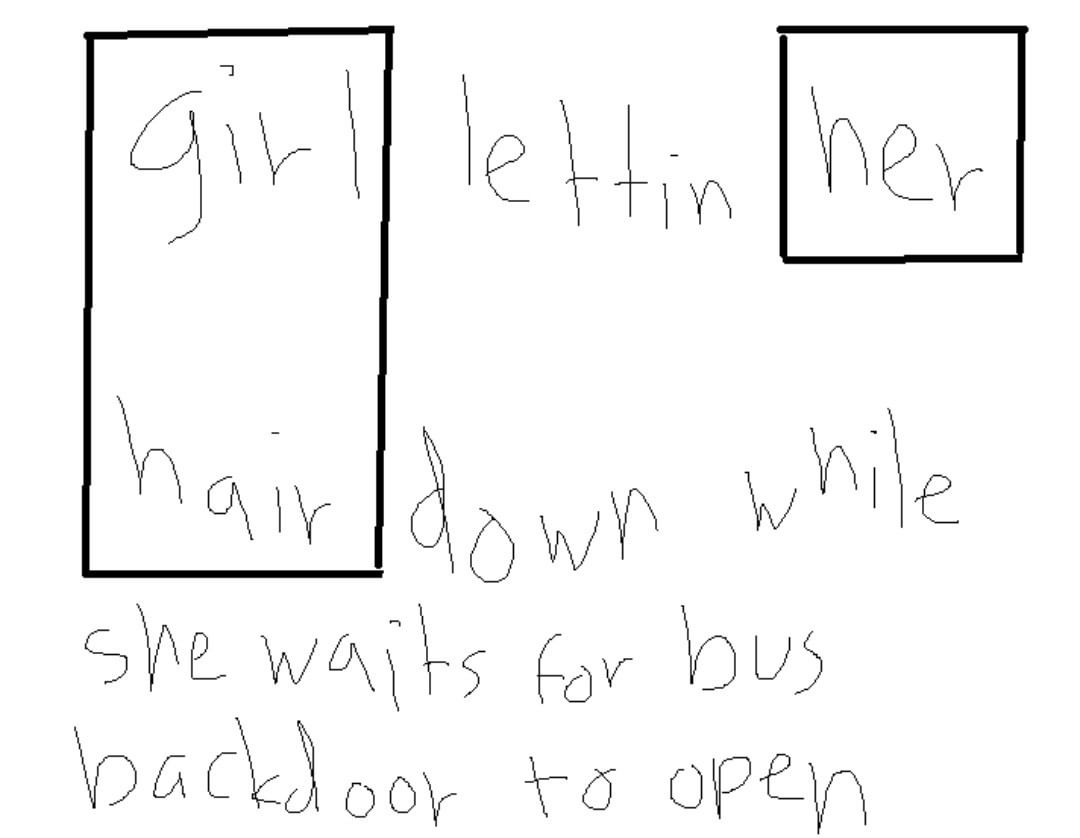 girl lettin her
hair down while
she waits for bus
backdoor to open